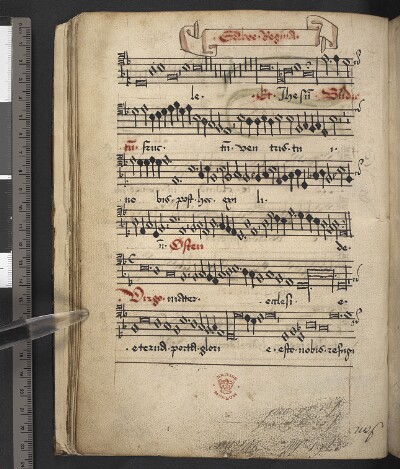 Salve Regina
le . Et Jhesū . Bndic
tū . fruc . tū . ven tris . tu i .
no bis . post . hoc . exi li .
ū . Osten de .
Virgo . mater . ecclesi . e .
. eterna . porta . glori e . esto . nobis . refugi